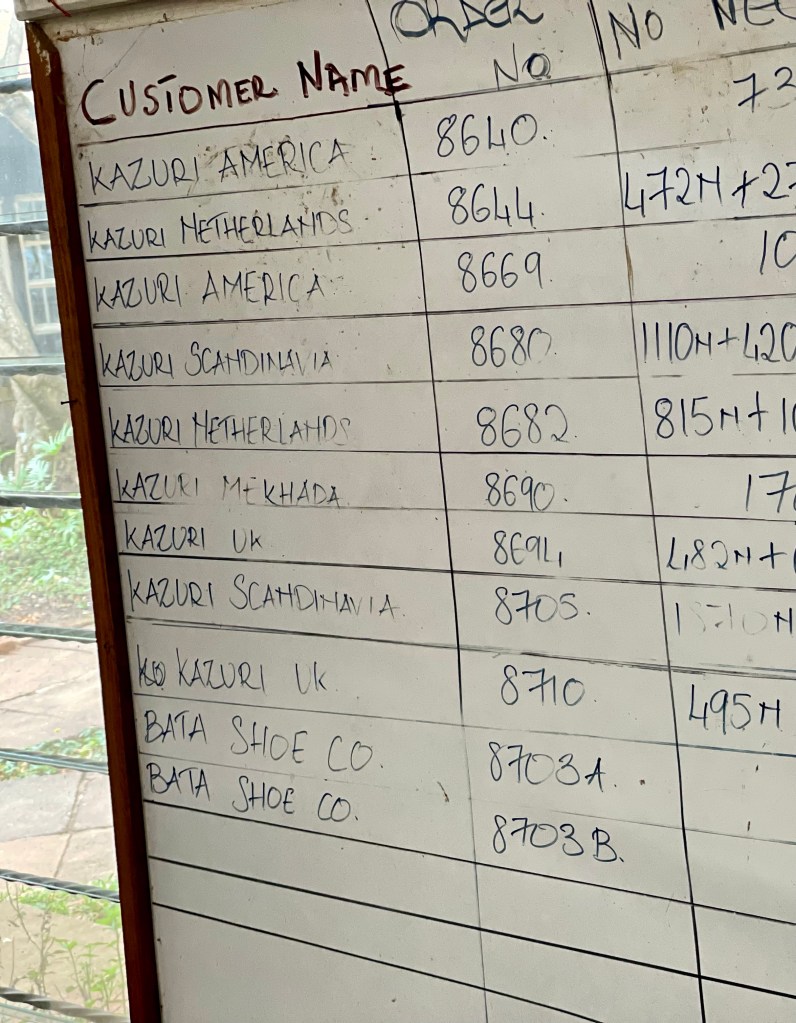 CUSTOMER NAME ORDER NO NO NEC
KAZURI AMERICA 8640. 72
KAZURI NETHERLANDS 8644. 472N+27
KAZURI AMERICA 8669. 10
KAZURI SCANDINAVIA 8680. 1110N+420
KAZURI NETHERLANDS 8682. 815N+10
KAZURI MEKHADA 8690. 17
KAZURI UK 8694 482N+
KAZURI SCANDINAVIA. 8705.
KAZURI UK 8710 495N
BATA SHOE CO. 8703A.
BATA SHOE CO. 8703B.